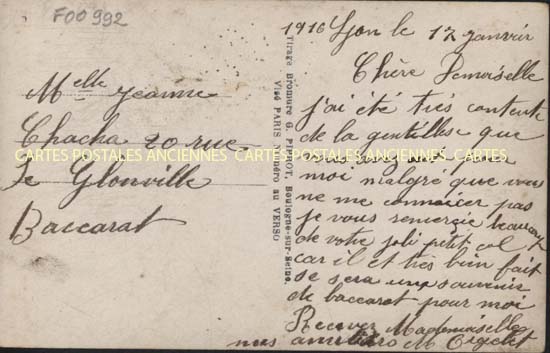 F00992
1916 Lyon le 17 janvier
Chère Demoiselle
j'ai été très contente
de la gentillesse que
pour
moi malgré que vous
ne me connaicer pas
je vous remercie beaucoup
de votre joli petit col
car il et très bien fait
se sera un souvenir
de baccarat pour moi
Recever Mademoiselle
mes M
Melle Jeanne
Chacha 20 rue
de Glonville
Baccarat
Tirage Bromure G. PIPROT, Boulogne-sur-Seine.
Visé PARIS numéro au VERSO
CARTES POSTALES ANCIENNES CARTES POSTALES ANCIENNES CARTES POSTALES ANCIENNES